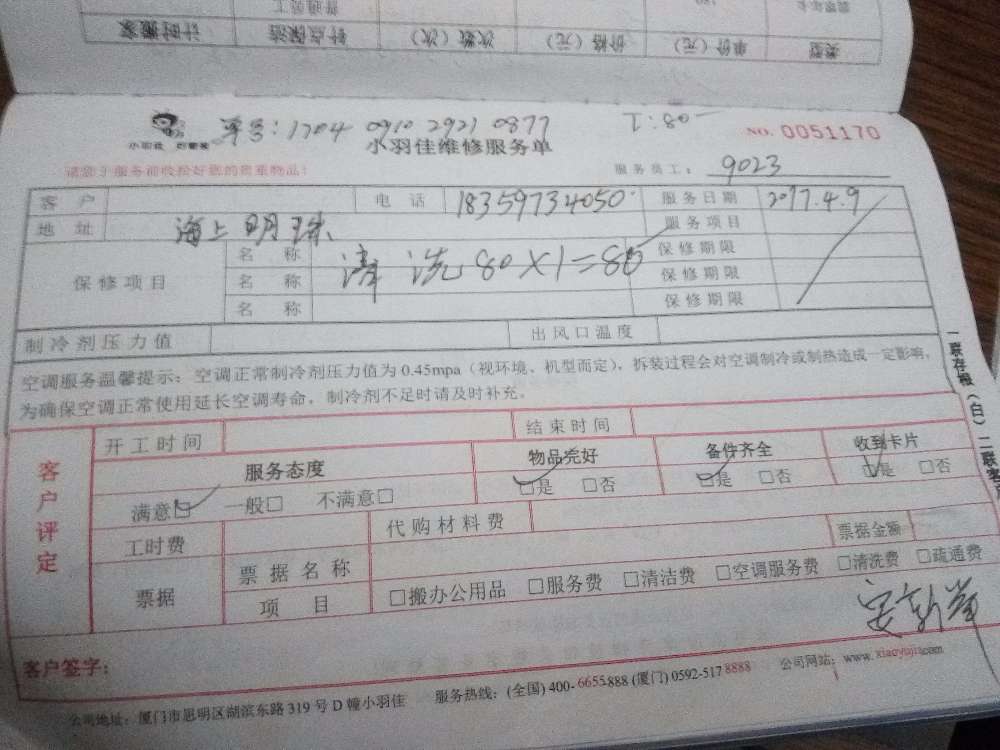 类型 单价（元） 价格（元） 次数（次） 钟点保洁 计时搬家
单号：1704 0910 2921 0877
小羽佳维修服务单
NO. 0051170
请您于服务前收拾好您的贵重物品！
服务员工： 9023
客户 电话 18359734050 服务日期 2017.4.9
地址 海上明珠 服务项目
保修项目 名称 清洗80×1=80 保修期限
名称 保修期限
名称 保修期限
制冷剂压力值 出风口温度
空调服务温馨提示：空调正常制冷剂压力值为 0.45mpa（视环境、机型而定），拆装过程会对空调制冷或制热造成一定影响，
为确保空调正常使用延长空调寿命，制冷剂不足时请及时补充。
一联存根（白）二联客
客户评定
开工时间 结束时间
服务态度 物品完好 备件齐全 收到卡片
满意□ 一般□ 不满意□ □是 □否 □是 □否 □是 □否
工时费 代购材料费 票据金额
票据 票据名称
项目 □搬办公用品 □服务费 □清洁费 □空调服务费 □清洗费 □疏通费
客户签字：
公司地址：厦门市思明区湖滨东路 319 号 D 幢小羽佳 服务热线：(全国) 400-6655888 (厦门) 0592-5178888 公司网站：www.xiaoyujia.com